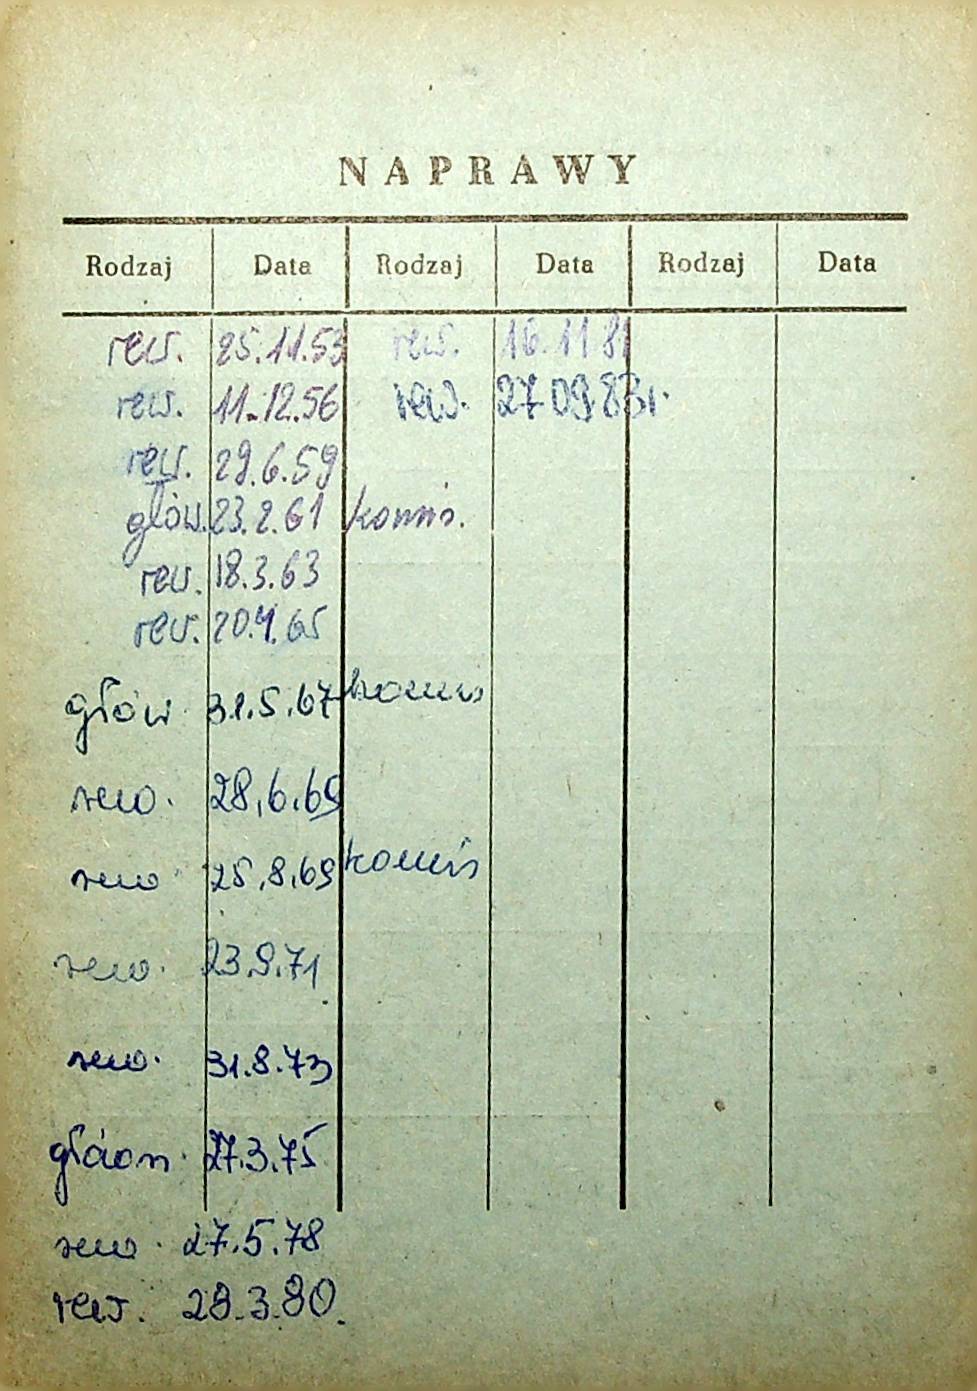 NAPRAWY
Rodzaj Data Rodzaj Data Rodzaj Data
rew. 25.11.53 rew. 16.11 81
rew. 11.12.56 rew. 27.09.83r.
rew. 29.6.59
głów. 23.2.61 komis.
rew. 18.3.63
rew. 20.4.65
głów 31.5.67 komis
rew. 28.6.69
rew 25.8.69 komis
rew. 23.9.71
rew. 31.8.73
główn. 27.3.75
rew. 27.5.78
rew. 28.3.80.